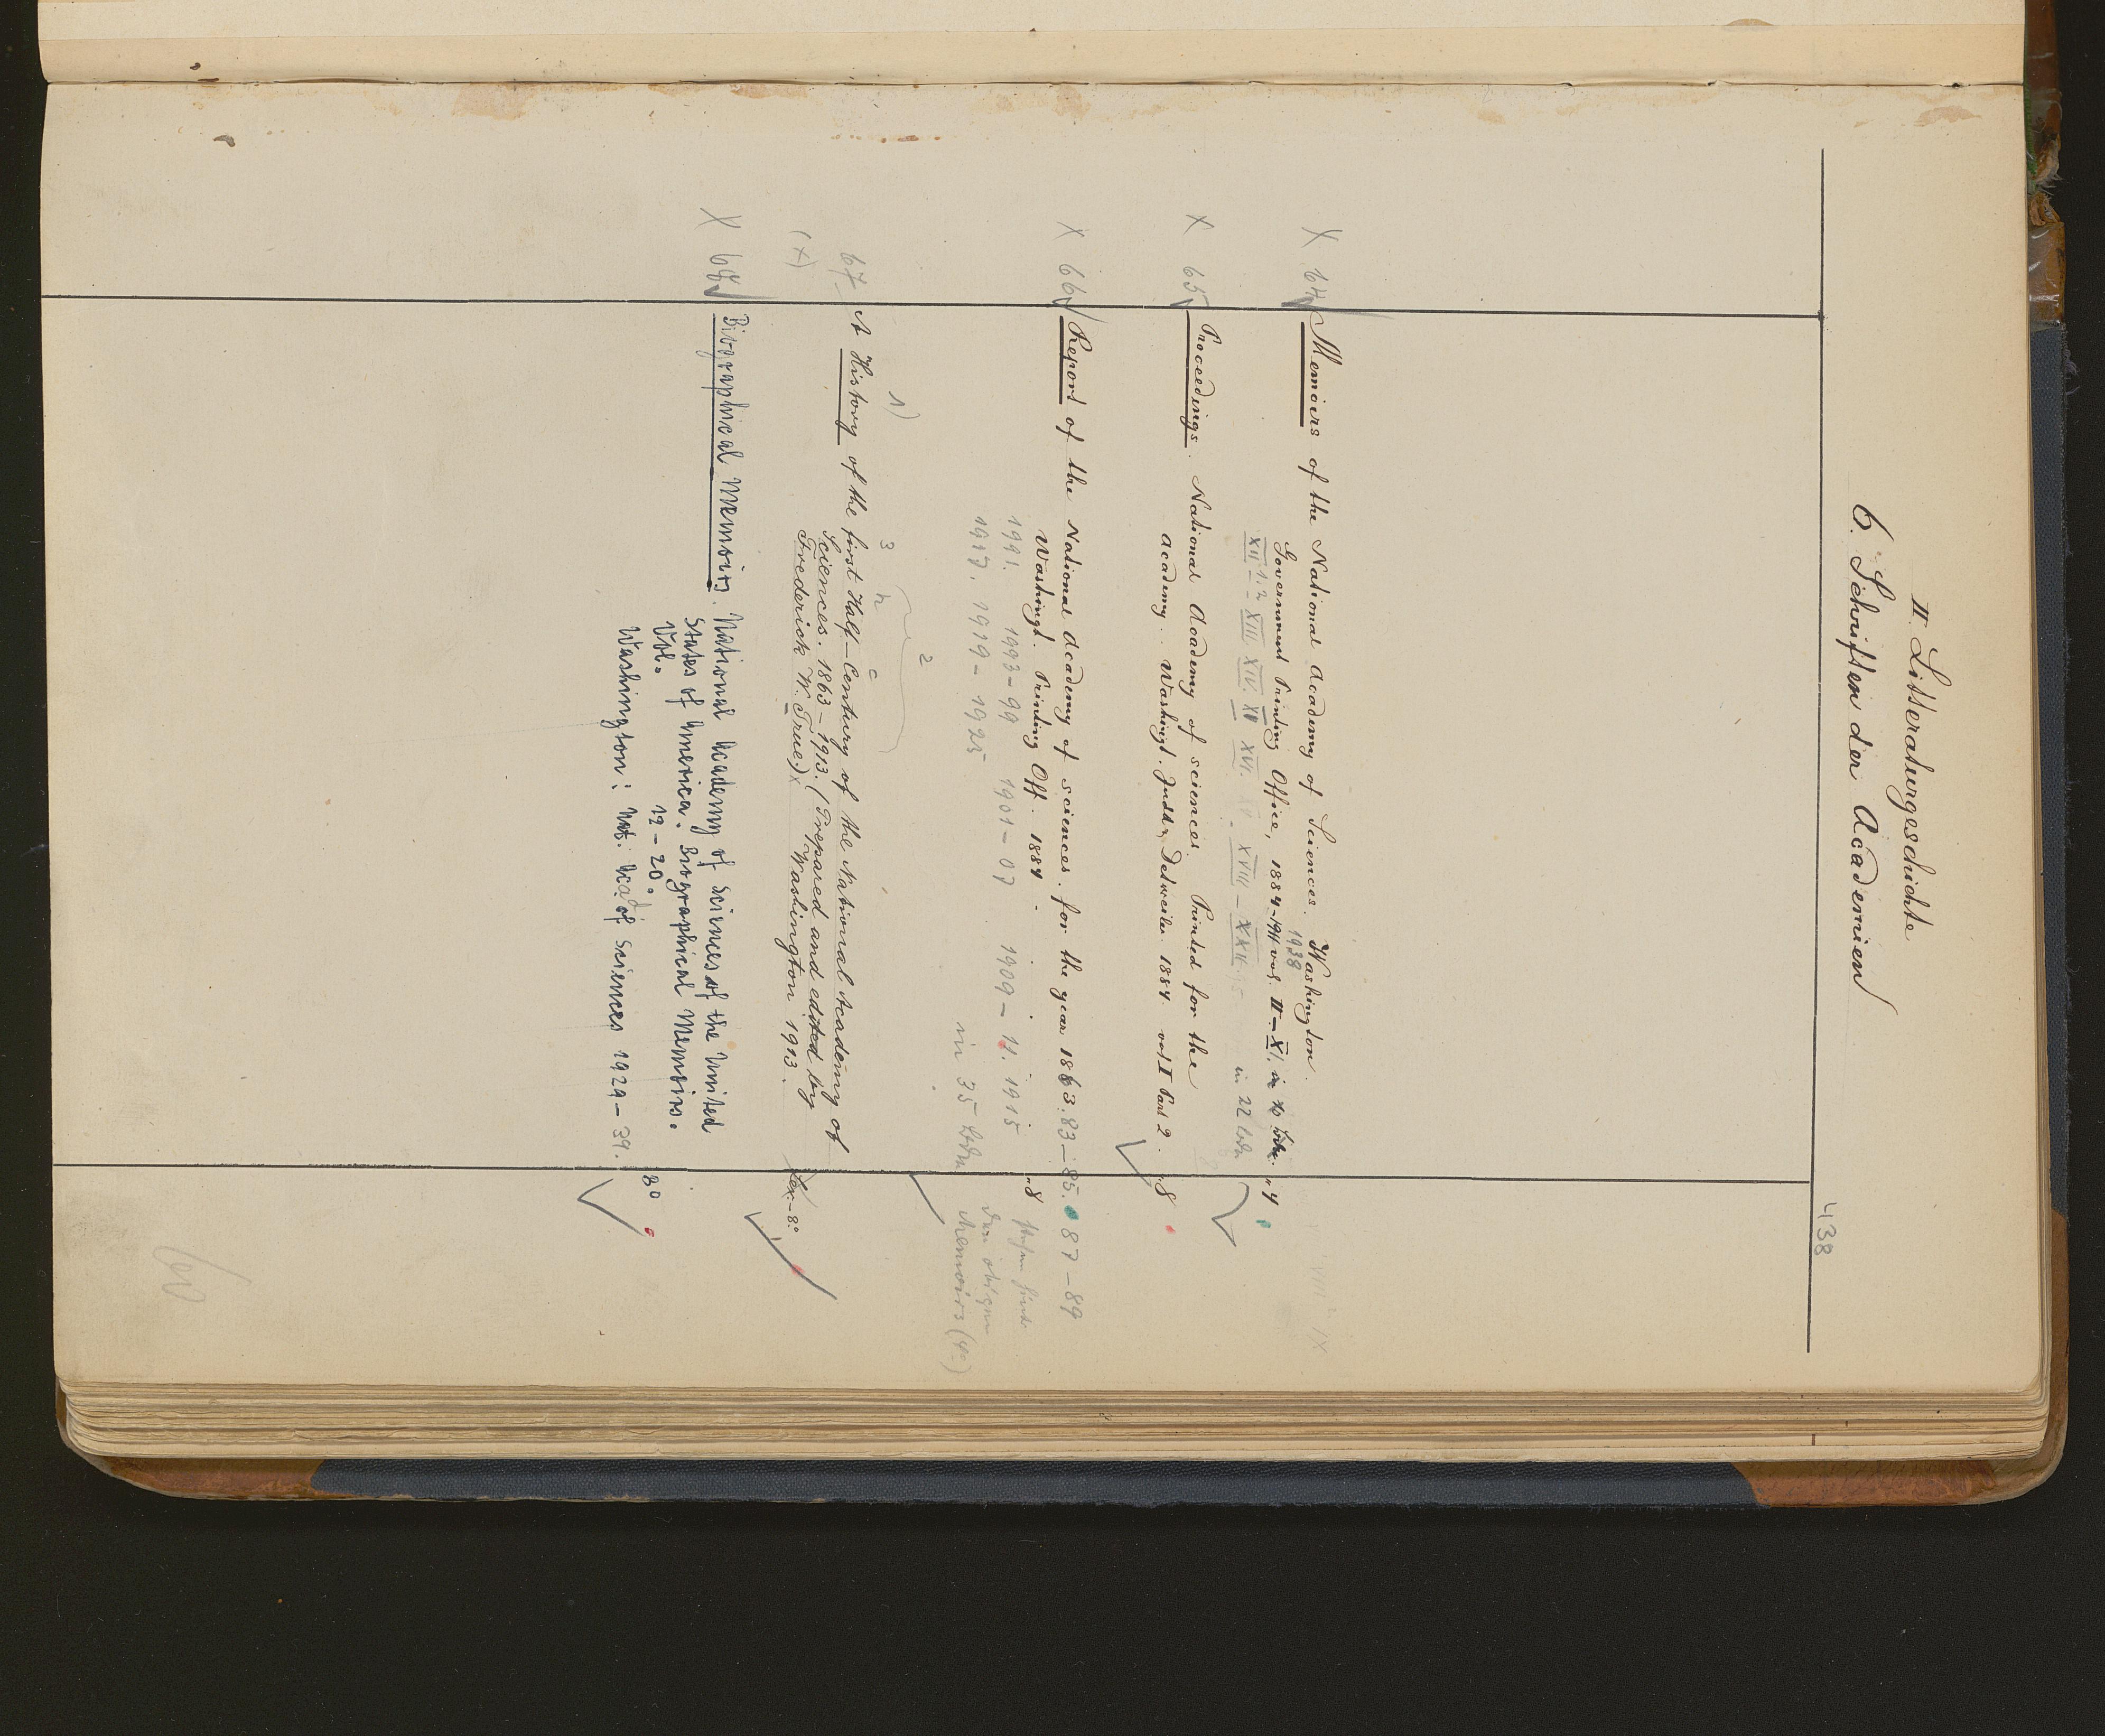 II. Litteraturgeschichte
6. Schriften der Academien
438
X 64 Memoirs of the National Academy of Sciences. Washington.
1938
Government Printing Office, 1884-1911 vol. II-XI. in 10 Bdn. 4
XII 1.2 XIII XIV. XV XVI. XVIII-XXII in 22 Bdn
X 65 Proceedings. National Academy of sciences. Printed for the
academy. Washingt. Judd & Detweiler. 1884. vol I Part 2. 8
X 66 Report of the National Academy of sciences. for the year 1863. 83-85. 87-89
Washingt. Printing Off. 1884. 8
1891. 1893-99 1901-07 1909-11. 1915
1917. 1919-1925
in 35 Bdn
Memoirs (4°)
1) 3 2
67 A History of the first Half-Century of the National Academy of
(X) Sciences. 1863-1913. (Prepared and edited by
Frederick W. True.) Washington 1913. Lex.-8°
X 68 Biographical Memoirs. National Academy of Sciences of the United
States of America. Biographical Memoirs.
Vol. 12-20. 8°
Washington: Nat. Acad of Sciences 1929-39.